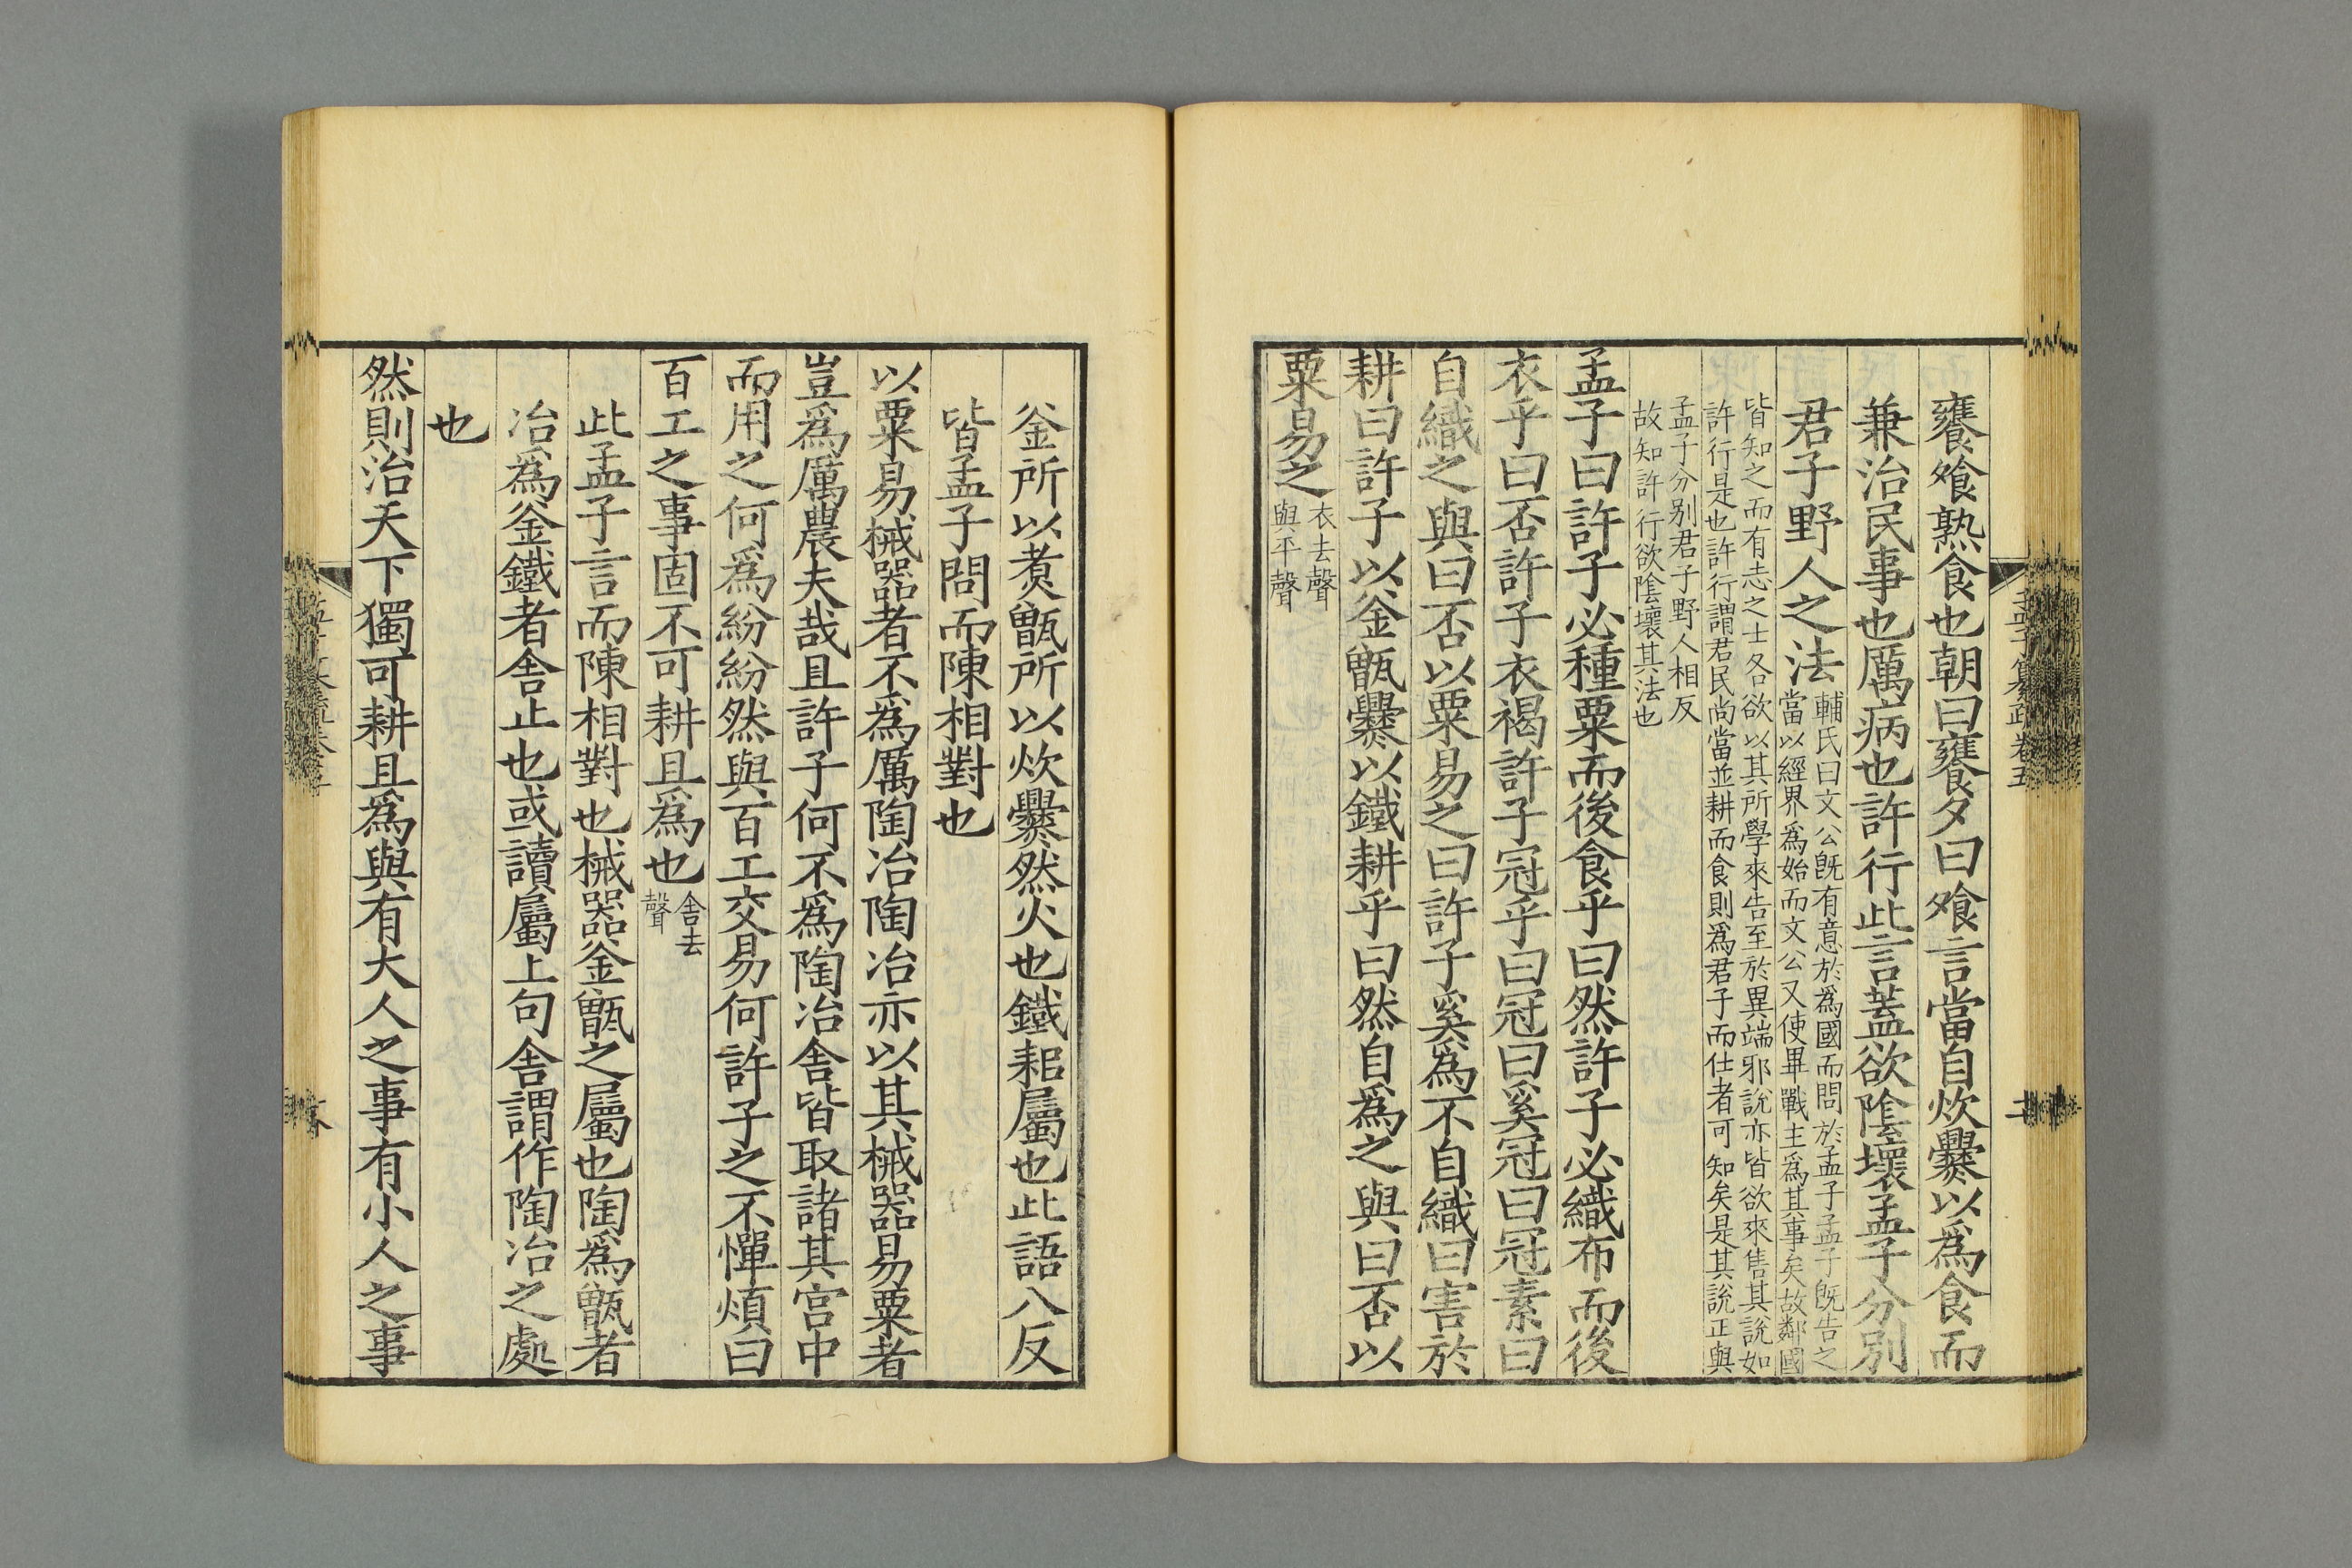 饔飧熟食也朝曰饔夕曰飧言當自炊爨以爲食而
兼治民事也厲病也許行此言蓋欲陰壞孟子分别
君子野人之法
輔氏曰文公旣有意於爲國而問於孟子孟子旣告之
當以經界爲始而文公又使畢戰主爲其事矣故鄰國
皆知之而有志之士各欲以其所學來告至於異端邪說亦皆欲來售其說如
許行是也許行謂君民尚當並耕而食則爲君子而仕者可知矣是其說正與
孟子分别君子野人相反
故知許行欲陰壞其法也
孟子曰許子必種粟而後食乎曰然許子必織布而後
衣乎曰否許子衣褐許子冠乎曰冠曰奚冠曰冠素曰
自織之與曰否以粟易之曰許子奚爲不自織曰害於
耕曰許子以釜甑爨以鐵耕乎曰然自爲之與曰否以
粟易之
衣去聲
與平聲
釜所以煑甑所以炊爨然火也鐵耜屬也此語八反
皆孟子問而陳相對也
以粟易械器者不爲厲陶冶陶冶亦以其械器易粟者
豈爲厲農夫哉且許子何不爲陶冶舍皆取諸其宫中
而用之何爲紛紛然與百工交易何許子之不憚煩曰
百工之事固不可耕且爲也
舍去
聲
此孟子言而陳相對也械器釜甑之屬也陶爲甑者
冶爲釜鐵者舍止也或讀屬上句舍謂作陶冶之處
也
然則治天下獨可耕且爲與有大人之事有小人之事